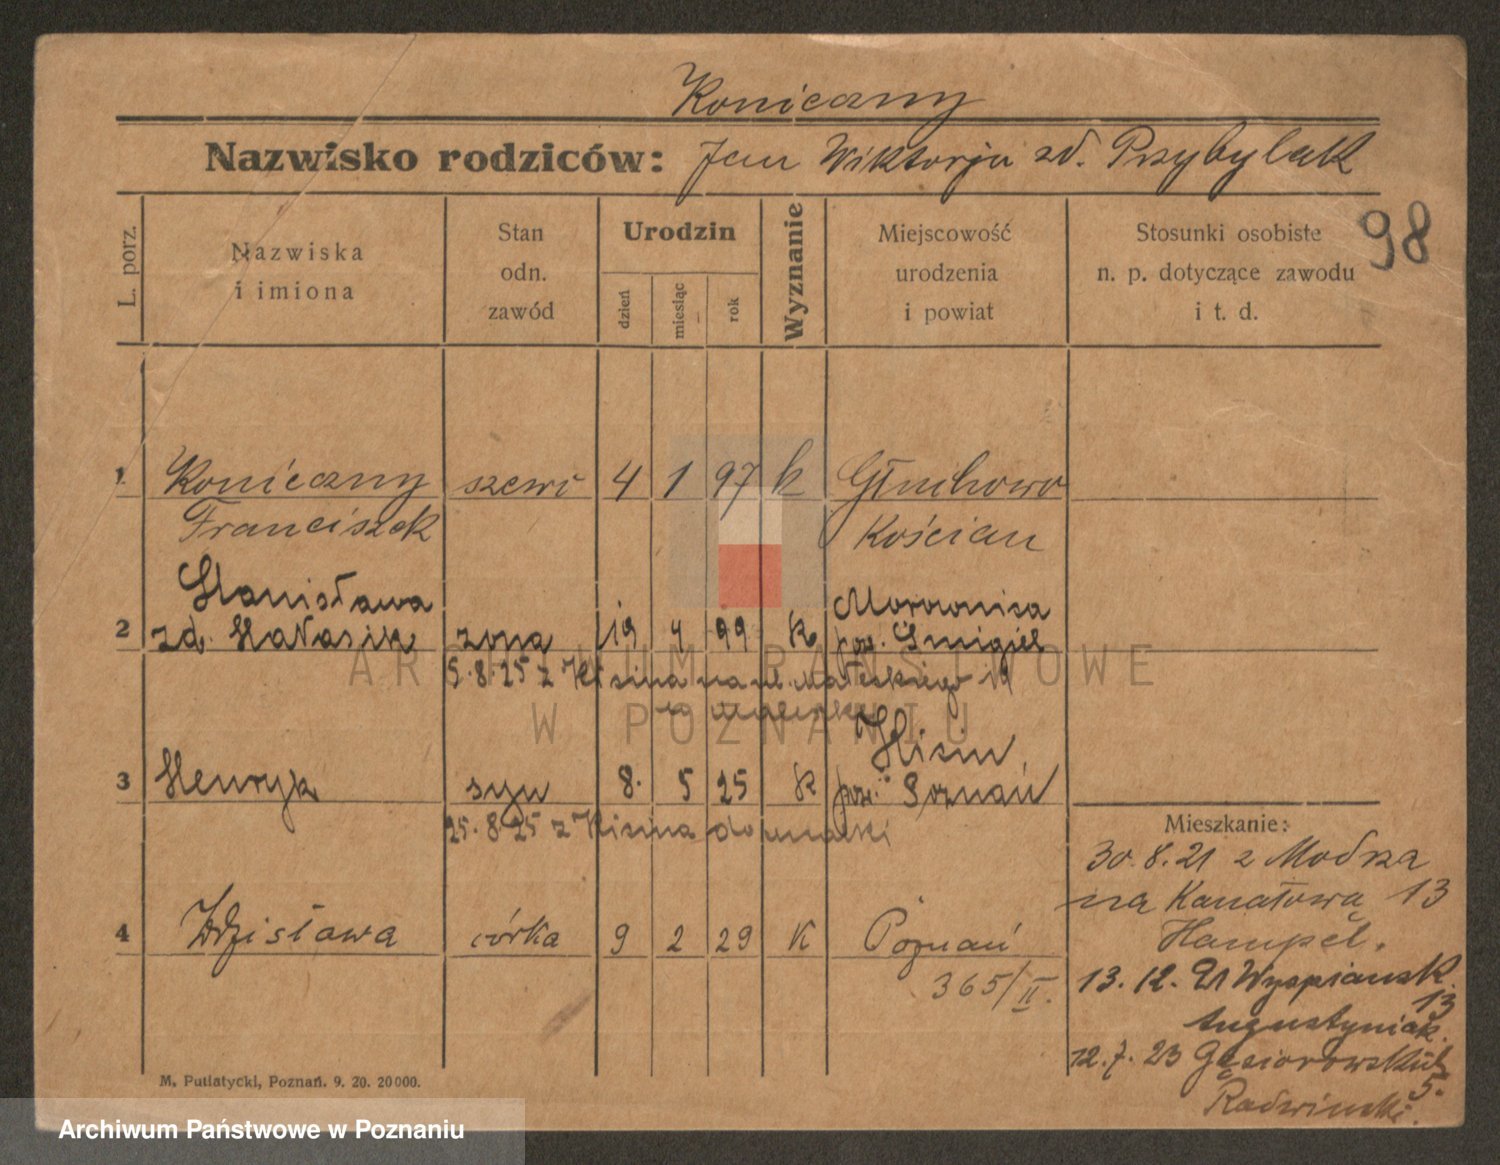 Koniczny
Nazwisko rodziców: Jan Wiktorja zd. Przybylak
98
L. porz.
Nazwiska
i imiona
Stan
odn.
zawód
Urodzin
dzień
miesiąc
rok
Wyznanie
Miejscowość
urodzenia
i powiat
Stosunki osobiste
n. p. dotyczące zawodu
i t. d.
1 Koniczny szewc 4 1 97 k Głuchowo
Franciszek Kościan
Stanisława Morownica
2 zd. Hałasik żona 19 4 99 k pow. Śmigiel
5.8.25 z na ul. 19
3 Henryk syn 8. 5 25 k pow. Poznań
25.8.25 z do matki
4 Zdzisława córka 9 2 29 K Poznań
365/II.
Mieszkanie:
30.8.21 z Modrza
na Kanałowa 13
Hampel.
13.12.21 Wyspiańsk.
13
Augustyniak.
12.7.23 Gąsiorowskich
5.
Radwiński.
M. Putiatycki, Poznań. 9. 20. 20000.
ARCHIWUM PAŃSTWOWE
W POZNANIU
Archiwum Państwowe w Poznaniu